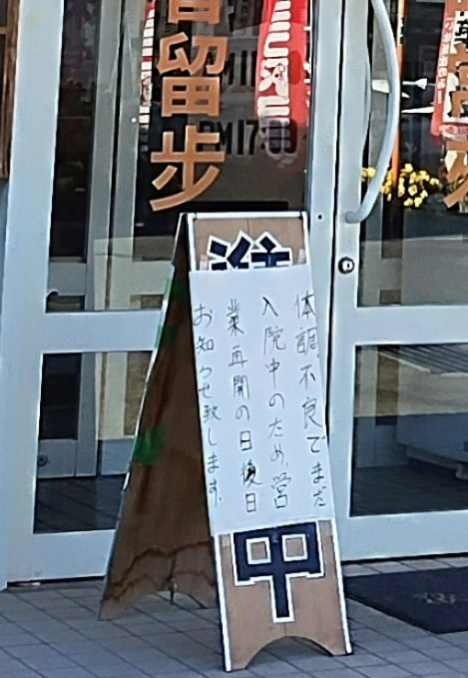 留歩
PM17:00
体調不良でまだ
入院中のため、営
業再開の日後日
お知らせ致します。
中